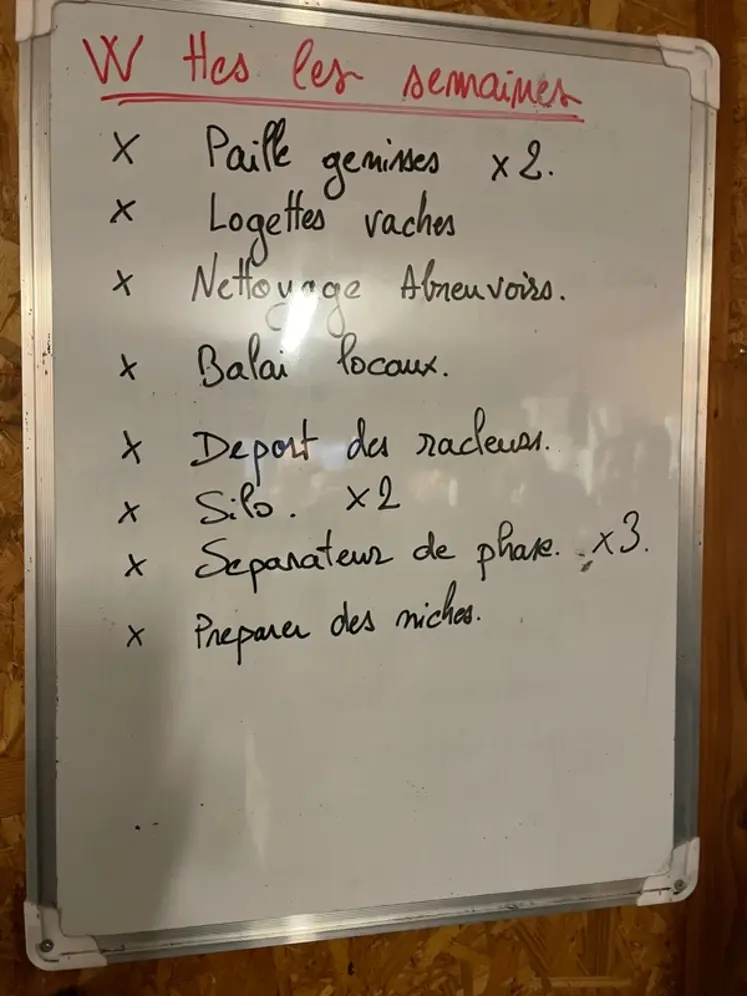 W ttes les semaines
x Paille genisses x2.
x Logettes vaches
x Nettoyage Abreuvoirs.
x Balai locaux.
x Deport des racleurs.
x Silo. x2
x Separateur de phase. x3.
x Preparer des niches.